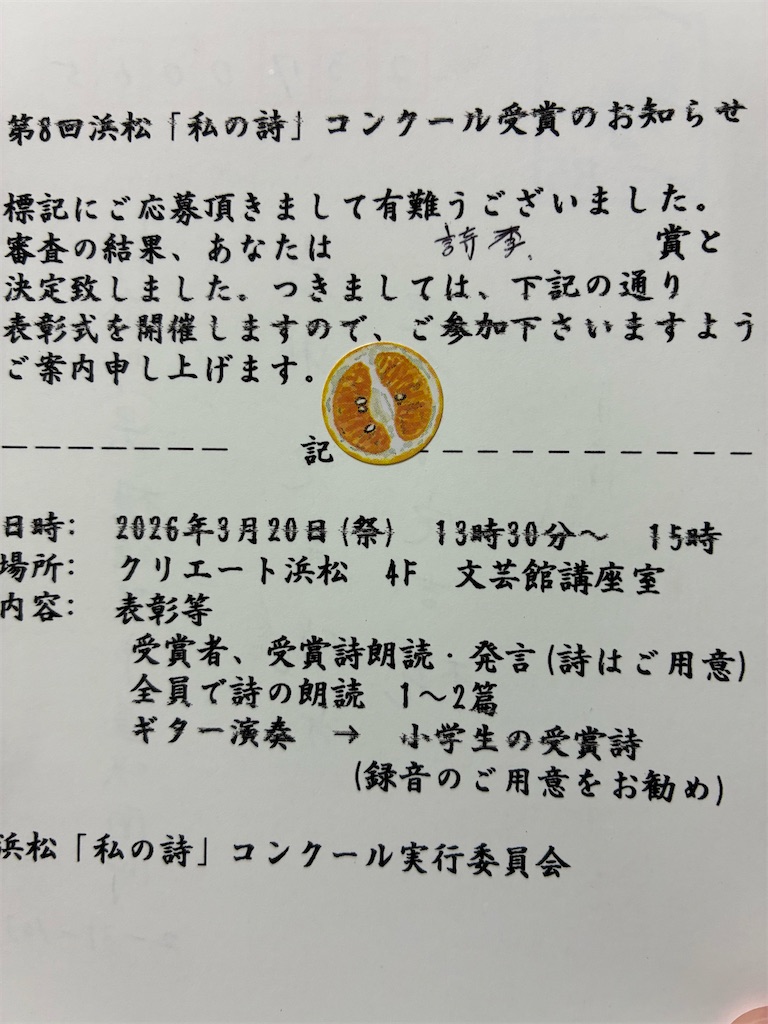 第8回浜松「私の詩」コンクール受賞のお知らせ
標記にご応募頂きまして有難うございました。
審査の結果、あなたは 詩季 賞と
決定致しました。つきましては、下記の通り
表彰式を開催しますので、ご参加下さいますよう
ご案内申し上げます。
記
日時: 2026年3月20日(祭) 13時30分〜 15時
場所: クリエート浜松 4F 文芸館講座室
内容: 表彰等
受賞者、受賞詩朗読・発言(詩はご用意)
全員で詩の朗読 1〜2篇
ギター演奏 → 小学生の受賞詩
(録音のご用意をお勧め)
浜松「私の詩」コンクール実行委員会